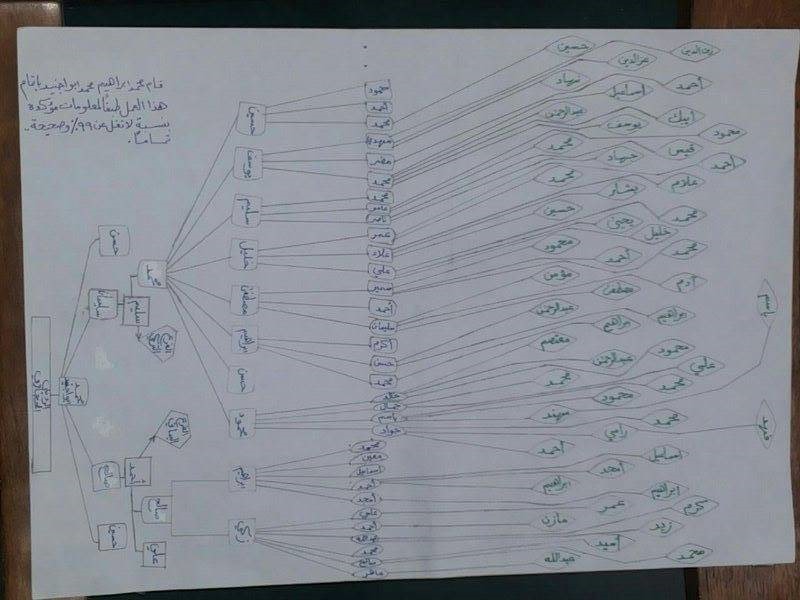 قام محمد ابراهيم محمد ابو اجنيد باتمام
هذا العمل طبقاً لمعلومات مؤكدة
بنسبة لا تقل عن 99% وصحيحة
تماماً.
حسين
يوسف
سليم
خليل
مصطفى
ابراهيم
حسن
محمود
ابراهيم
زكي
محمد
حسن
سليمان
سليم
محمد
صالح
أحمد
صالح
علي
حسين
محمود
أحمد
محمد
مهدي
خضر
محمد
محمد
ناصر
عمر
علاء
علي
سمير
أحمد
سليمان
أكرم
حسن
محمد
باسم
جواد
محمد
معين
اسماعيل
أحمد
أمجد
علي
أحمد
عبدالله
محمد
صالح
عامر
حسين
نهاد
عبدالرحمن
محمد
محمد
حسين
محمود
مؤمن
عبدالرحمن
معتصم
محمد
مهند
أحمد
ابراهيم
مازن
عبدالله
عزالدين
اسماعيل
يوسف
جهاد
بشار
يحيى
أحمد
مصطفى
ابراهيم
عبدالرحمن
محمود
رامي
أمجد
عمر
أميد
زين الدين
أحمد
ايبك
محمود
قيس
أحمد
علام
محمد
خليل
محمد
آدم
ابراهيم
محمود
علي
محمد
محمد
اسماعيل
ابراهيم
كرم
زيد
محمد
باسم
فريد